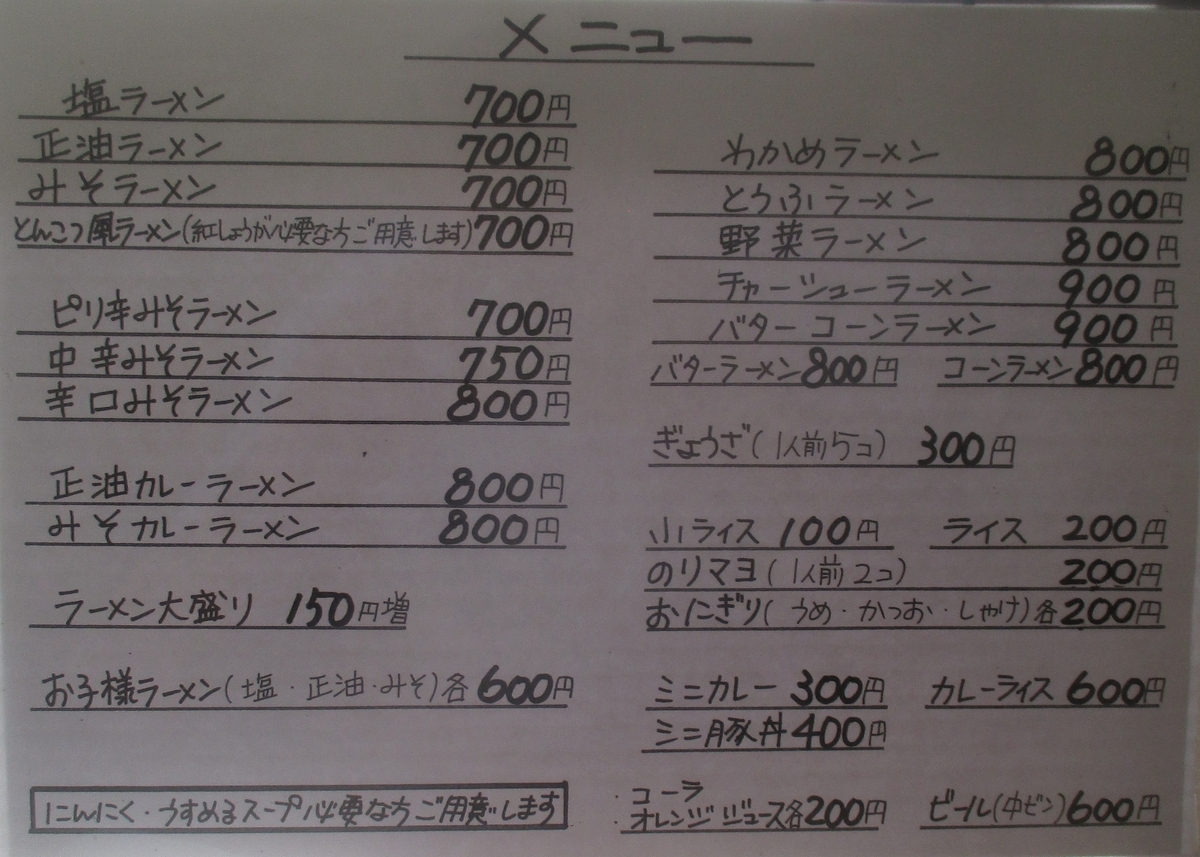 メニュー
塩ラーメン 700円
正油ラーメン 700円
みそラーメン 700円
とんこつ風ラーメン(紅しょうが必要な方ご用意します)700円
ピリ辛みそラーメン 700円
中辛みそラーメン 750円
辛口みそラーメン 800円
正油カレーラーメン 800円
みそカレーラーメン 800円
ラーメン大盛り 150円増
お子様ラーメン(塩・正油・みそ)各600円
にんにく・うすめるスープ必要な方ご用意します
わかめラーメン 800円
とうふラーメン 800円
野菜ラーメン 800円
チャーシューラーメン 900円
バターコーンラーメン 900円
バターラーメン800円 コーンラーメン800円
ぎょうざ(1人前5コ) 300円
小ライス 100円 ライス 200円
のりマヨ(1人前2コ) 200円
おにぎり(うめ・かつお・しゃけ)各200円
ミニカレー 300円 カレーライス 600円
ミニ豚丼400円
コーラ
オレンジジュース各200円 ビール(中ビン)600円